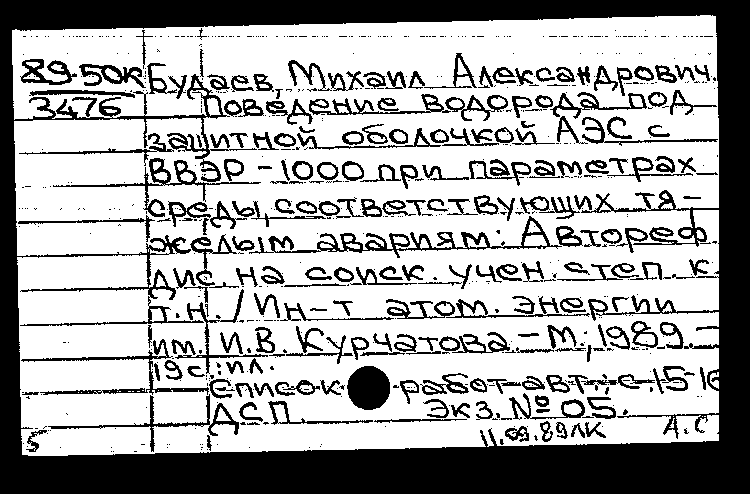 89-50К
3476
Будаев, Михаил Александрович.
Поведение водорода под
защитной оболочкой АЭС с
ВВЭР-1000 при параметрах
среды, соответствующих тя-
желым авариям: Автореф.
дис. на соиск. учен. степ. к.
т.н. / Ин-т атом. энергии
им. И.В. Курчатова. - М., 1989. -
19 с.: ил.
Список работ авт.: с. 15-16
ДСП. Экз. № 05.
5 11.09.89 ЛК А.С